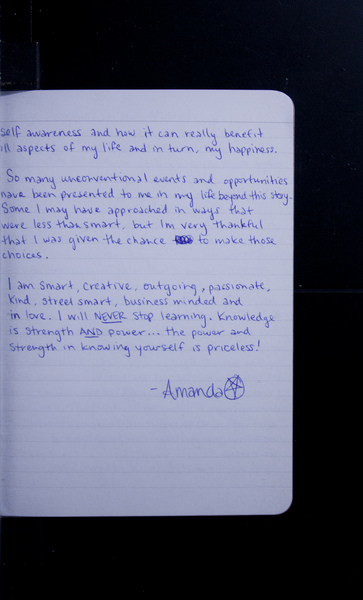 self awareness and how it can really benefit
all aspects of my life and in turn, my happiness.
So many unconventional events and opportunities
have been presented to me in my life beyond this story.
Some I may have approached in ways that
were less than smart, but I'm very thankful
that I was given the chance to make those
choices.
I am smart, creative, outgoing, passionate,
kind, street smart, business minded and
in love. I will NEVER stop learning. Knowledge
is strength AND power... the power and
strength in knowing yourself is priceless!
- Amanda